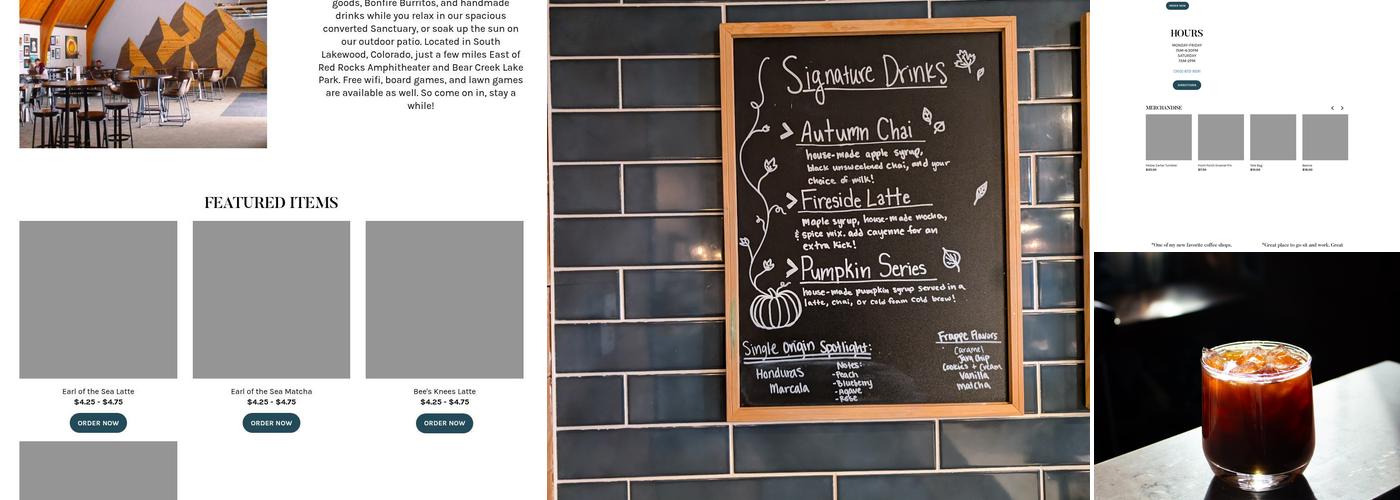 goods, Bonfire Burritos, and handmade
drinks while you relax in our spacious
converted Sanctuary, or soak up the sun on
our outdoor patio. Located in South
Lakewood, Colorado, just a few miles East of
Red Rocks Amphitheater and Bear Creek Lake
Park. Free wifi, board games, and lawn games
are available as well. So come on in, stay a
while!
FEATURED ITEMS
Earl of the Sea Latte
$4.25 - $4.75
ORDER NOW
Earl of the Sea Matcha
$4.25 - $4.75
ORDER NOW
Bee's Knees Latte
$4.25 - $4.75
ORDER NOW
Signature Drinks
> Autumn Chai
house-made apple syrup,
black unsweetened chai, and your
choice of milk!
> Fireside Latte
maple syrup, house-made mocha,
& spice mix. add cayenne for an
extra kick!
> Pumpkin Series
house-made pumpkin syrup served in a
latte, chai, or cold foam cold brew!
Single Origin Spotlight:
Honduras
Marcala
Notes:
-Peach
-Blueberry
-Agave
-Rose
Frappe Flavors
Caramel
Java Chip
Cookies + Cream
Vanilla
matcha
ORDER NOW
HOURS
MONDAY-FRIDAY
7AM-4:30PM
SATURDAY
7AM-2PM
DIRECTIONS
MERCHANDISE
Tote Bag
Beanie
"One of my new favorite coffee shops.
"Great place to go sit and work. Great